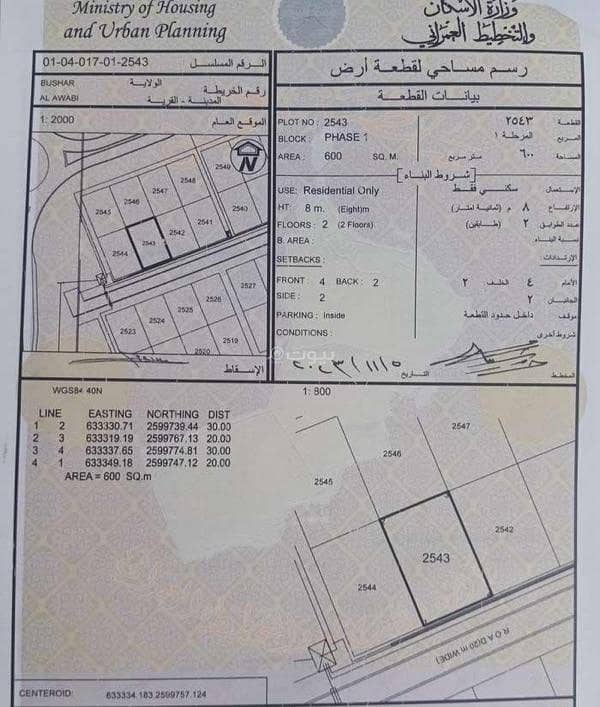 Ministry of Housing
and Urban Planning
وزارة الاسكان
والتخطيط العمراني
01-04-017-01-2543
الرقم المسلسل
BUSHAR
الولاية
AL AWABI
المدينة - القرية
رقم الخريطة
1: 2000
الموقع العام
رسم مساحي لقطعة أرض
بيانات القطعة
PLOT NO : 2543
٢٥٤٣
القطعة
BLOCK : PHASE 1
المرحلة ١
المربع
AREA : 600 SQ. M.
متر مربع
٦٠٠
المساحة
شروط البناء
USE: Residential Only
سكني فقط
الإستعمال
HT: 8 m. (Eight)m
٨ م (ثمانية امتار)
الإرتفاع
FLOORS : 2 (2 Floors)
٢ (طابقين)
عدد الطوابق
B. AREA :
نسبة البناء
SETBACKS :
الإرتدادات:
FRONT : 4 BACK : 2
الأمام ٤ الخلف ٢
SIDE : 2
الجانبان ٢
PARKING : Inside
موقف داخل حدود القطعة
CONDITIONS :
شروط أخرى
2549
2548
2547
2546
2545
2540
2541
2542
2543
2544
2527
2526
2525
2524
2523
2519
2520
N
الإسقاط
٢٠٢٣/١١/٥
التاريخ
المخطط
WGS84 40N
1: 800
LINE EASTING NORTHING DIST
1 2 633330.71 2599739.44 30.00
2 3 633319.19 2599767.13 20.00
3 4 633337.65 2599774.81 30.00
4 1 633349.18 2599747.12 20.00
AREA = 600 SQ.m
2547
2546
2545
2542
2543
2544
ROAD(20 m WIDE)
بيوت
CENTEROID: 633334.183,2599757.124